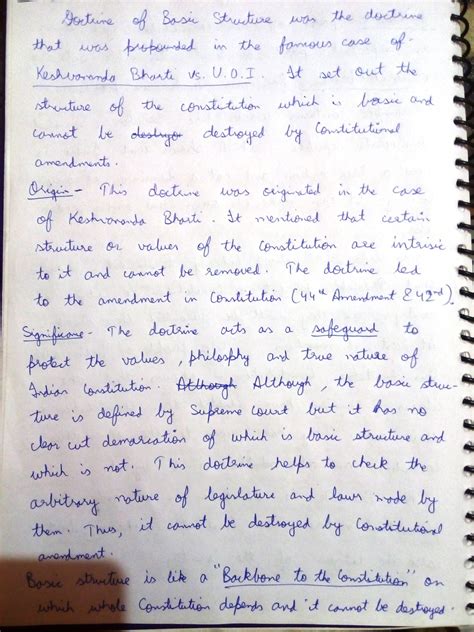 Doctrine of Basic Structure was the doctrine
that was propounded in the famous case of
Keshvananda Bharti vs. U.O.I. It set out the
structure of the constitution which is basic and
cannot be destroyo destroyed by Constitutional
amendments.
Origin - This doctrine was originated in the case
of Keshvananda Bharti. It mentioned that certain
structure or values of the constitution are intrisic
to it and cannot be removed. The doctrine led
to the amendment in Constitution (44th Amendment & 42nd).
Significane - The doctrine acts as a safeguard to
protect the values, philosphy and true nature of
Indian Constitution. Although Although, the basic struc-
ture is defined by Supreme court but it has no
clear cut demarcation of which is basic structure and
which is not. This doctrine helps to check the
arbitrary nature of legislature and laws made by
them. Thus, it cannot be destroyed by Constitutional
amendment.
Basic structure is like a "Backbone to the Constitution" on
which whole Constitution depends and it cannot be destroyed.